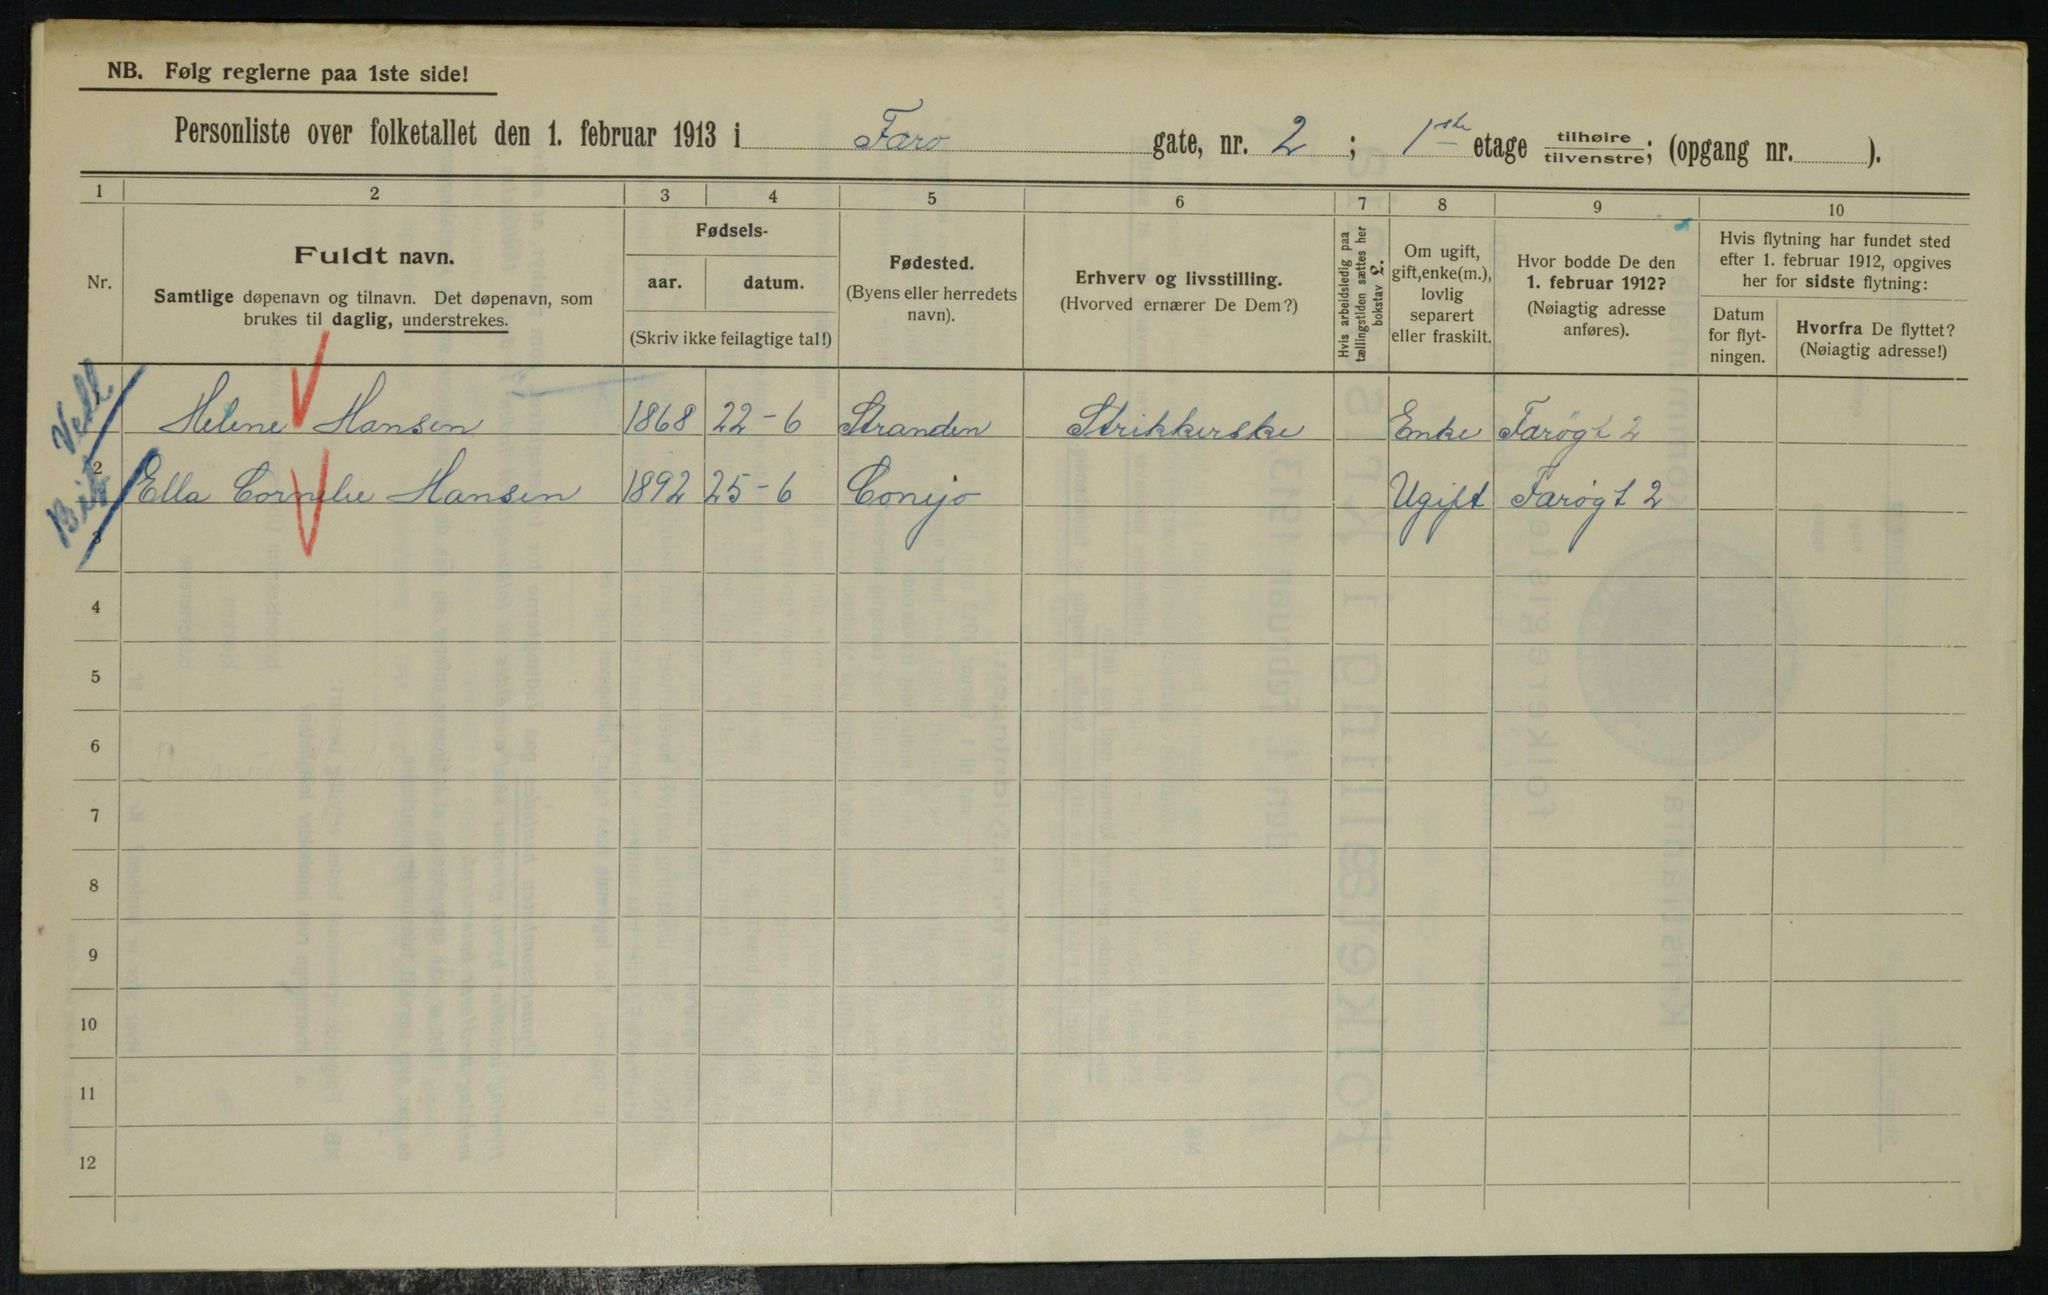 NB. Følg reglerne paa 1ste side!
Personliste over folketallet den 1. februar 1913 i Færo gate, nr. 2 ; 1ste etage tilhøire tilvenstre; (opgang nr. ).
1 2 3 4 5 6 7 8 9 10
Nr.
Fuldt navn.
Samtlige døpenavn og tilnavn. Det døpenavn, som
brukes til daglig, understrekes.
Fødsels-
aar. datum.
(Skriv ikke feilagtige tal!)
Fødested.
(Byens eller herredets
navn).
Erhverv og livsstilling.
(Hvorved ernærer De Dem?)
Hvis arbeidsledig paa
tællingstiden sættes her
bokstav L.
Om ugift,
gift, enke(m.),
lovlig
separert
eller fraskilt.
Hvor bodde De den
1. februar 1912?
(Nøiagtig adresse
anføres).
Hvis flytning har fundet sted
efter 1. februar 1912, opgives
her for sidste flytning:
Datum
for flyt-
ningen.
Hvorfra De flyttet?
(Nøiagtig adresse!)
Helene Hansen 1868 22-6 Stranden Strikkerske Enke Færøgt 2
2 Ella Cornelie Hansen 1892 25-6 Ugift Færøgt 2
3
4
5
6
7
8
9
10
11
12